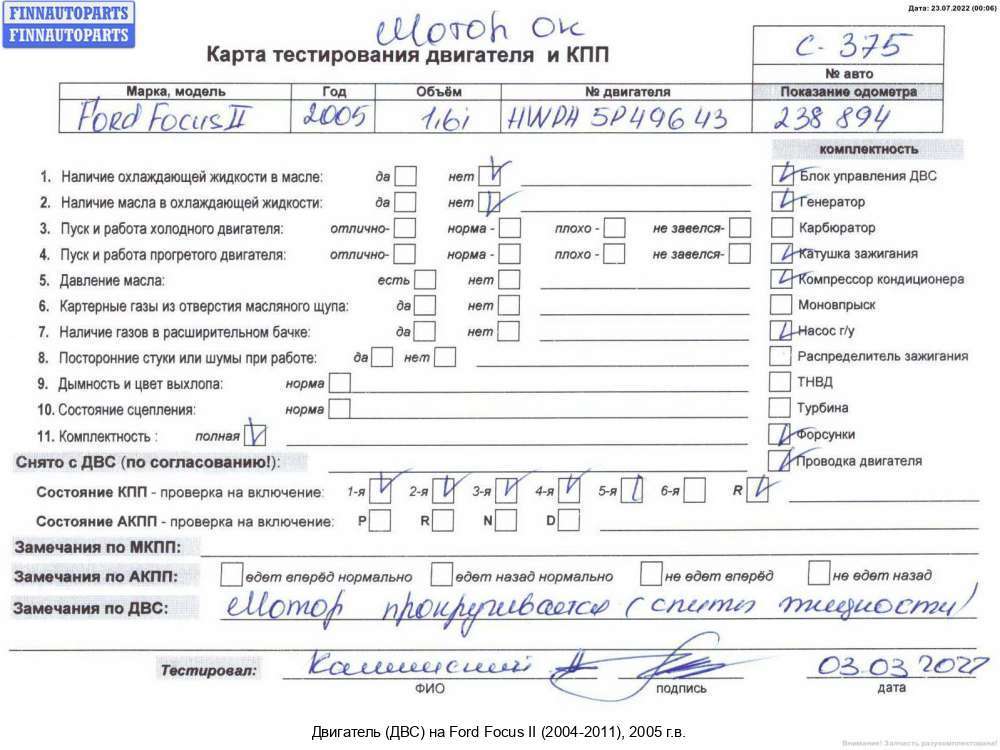 FINNAUTOPARTS
FINNAUTOPARTS
Дата: 23.07.2022 (00:06)
Мотор ок
Карта тестирования двигателя и КПП
С-375
№ авто
Марка, модель Год Объём № двигателя Показание одометра
Ford Focus II 2005 1,6i HWDA 5P49643 238 894
комплектность
1. Наличие охлаждающей жидкости в масле: да нет Блок управления ДВС
2. Наличие масла в охлаждающей жидкости: да нет Генератор
3. Пуск и работа холодного двигателя: отлично- норма - плохо - не завелся- Карбюратор
4. Пуск и работа прогретого двигателя: отлично- норма - плохо - не завелся- Катушка зажигания
5. Давление масла: есть нет Компрессор кондиционера
6. Картерные газы из отверстия масляного щупа: да нет Моновпрыск
7. Наличие газов в расширительном бачке: да нет Насос г/у
8. Посторонние стуки или шумы при работе: да нет Распределитель зажигания
9. Дымность и цвет выхлопа: норма ТНВД
10. Состояние сцепления: норма Турбина
11. Комплектность : полная Форсунки
Снято с ДВС (по согласованию!): Проводка двигателя
Состояние КПП - проверка на включение: 1-я 2-я 3-я 4-я 5-я 6-я R
Состояние АКПП - проверка на включение: P R N D
Замечания по МКПП:
Замечания по АКПП: едет вперёд нормально едет назад нормально не едет вперёд не едет назад
Замечания по ДВС: Мотор прокручивается (слиты жидкости)
Тестировал: 03.03 2022
ФИО подпись дата
Двигатель (ДВС) на Ford Focus II (2004-2011), 2005 г.в.
Внимание! Запчасть разукомплектована!